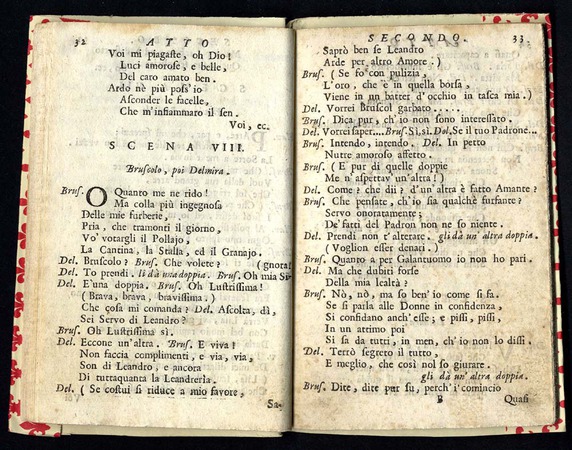 32 ATTO
Voi mi piagaste, oh Dio!
Luci amorose, e belle,
Del caro amato ben.
Ardo nè più poss'io
Asconder le facelle,
Che m'infiammaro il sen.
Voi, ec.
SCENA VIII.
Bruscolo, poi Delmira.
Brus. O Quanto me ne rido!
Ma colla più ingegnosa
Delle mie furberie,
Pria, che tramonti il giorno,
Vo' votargli il Pollajo,
La Cantina, la Stalla, ed il Granajo.
Del. Bruscolo? Brus. Che volete? (gnora!
Del. To prendi. li dà una doppia. Brus. Oh mia Si-
Del. E' una doppia. Brus. Oh Lustrissima!
(Brava, brava, bravissima.)
Che cosa mi comanda? Del. Ascolta, dì,
Sei Servo di Leandro?
Brus. Oh Lustrissima sì.
Del. Eccone un'altra. Brus. E viva!
Non faccia complimenti, e via, via,
Son di Leandro, e ancora
Di tuttaquanta la Leandreria.
Del. (Se costui si riduce a mio favore,
Sa-
SECONDO. 33
Saprò ben se Leandro
Arde per altro Amore.)
Brus. (Se fo con pulizia,
L'oro, che è in quella borsa,
Viene in un batter d'occhio in tasca mia.)
Del. Vorrei Bruscol garbato.....
Brus. Dica pur, ch'io non sono interessato.
Del. Vorrei saper.... Brus. Sì, sì. Del. Se il tuo Padrone...
Brus. Intendo, intendo. Del. In petto
Nutre amoroso affetto.
Brus. (E pur di quelle doppie
Me n'aspettav'un'altra!)
Del. Come? che dii? d'un'altra è fatto Amante?
Brus. Che pensate, ch'io sia qualche furfante?
Servo onoratamente;
De' fatti del Padron non ne so niente.
Del. Prendi non t'alterare. gli dà un'altra doppia.
(Voglion esser denari.)
Brus. Quanto a per Galantuomo io non ho pari.
Del. Ma che dubiti forse
Della mia lealtà?
Brus. Nò, nò, ma so ben'io come si fa.
Se si parla alle Donne in confidenza,
Si confidano anch'esse; e pissi, pissi,
In un attimo poi
Si sa da tutti, in men, ch'io non lo dissi.
Del. Terrò segreto il tutto,
E meglio, che così nol so giurare.
gli dà un'altra doppia.
Brus. Dite, dite pur su, perch'i' comincio
B Quasi